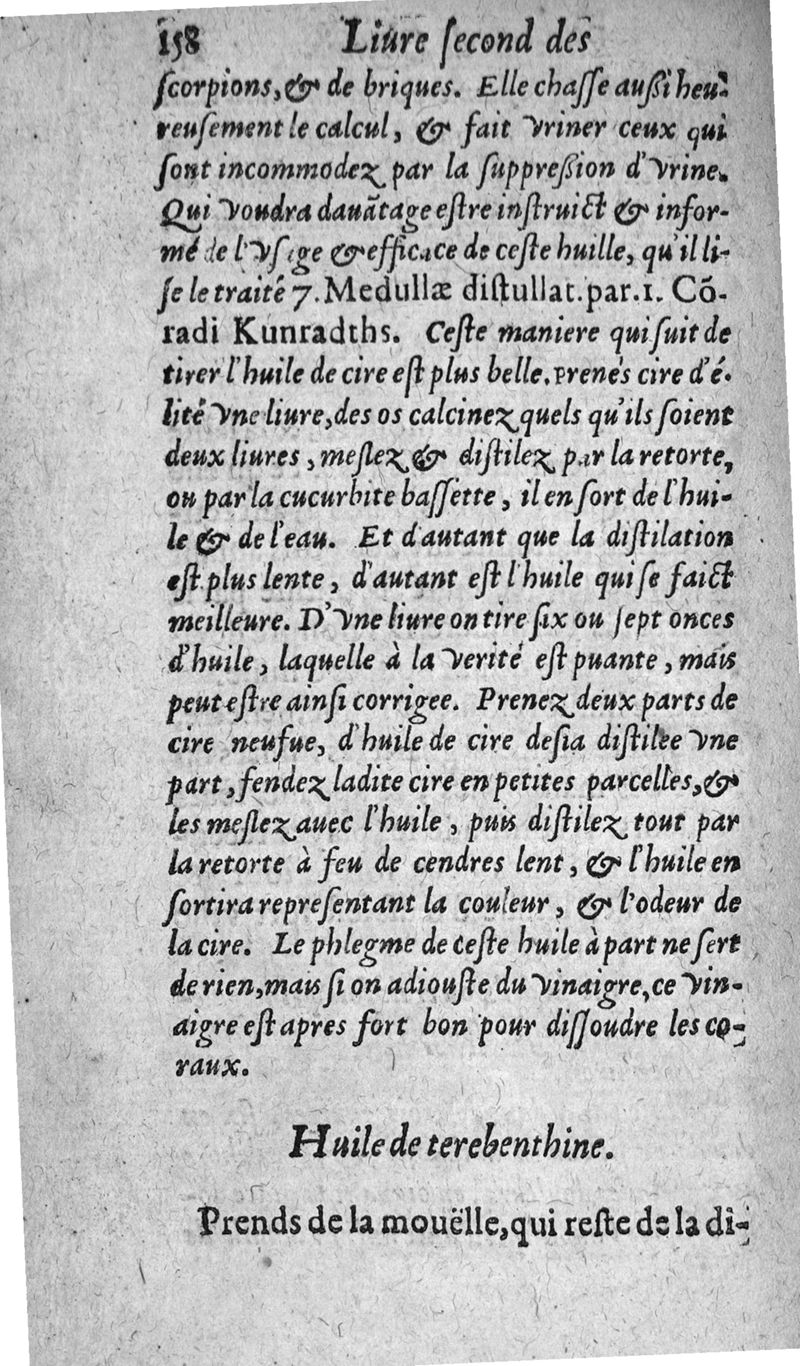 158 Liure ſecond des
ſcorpions, & de briques. Elle chaſſe außi heu-
reuſement le calcul, & fait vriner ceux qui
ſont incommodez par la ſuppreßion d'vrine.
Qui voudra dauãtage eſtre inſtruict & infor-
mé de l'vſage & efficace de ceſte huille, qu'il li-
ſe le traité 7. Medullæ diſtullat. par. 1. Cõ-
radi Kunradths. Ceſte maniere qui ſuit de
tirer l'huile de cire eſt plus belle. Prenés cire d'é-
lité vne liure, des os calcinez quels qu'ils ſoient
deux liures, meſlez & diſtilez par la retorte,
ou par la cucurbite baſſette, il en ſort de l'hui-
le & de l'eau. Et d'autant que la diſtilation
eſt plus lente, d'autant eſt l'huile qui ſe faict
meilleure. D'vne liure on tire ſix ou ſept onces
d'huile, laquelle à la verité eſt puante, mais
peut eſtre ainſi corrigee. Prenez deux parts de
cire neufue, d'huile de cire deſia diſtilee vne
part, fendez ladite cire en petites parcelles, &
les meſlez auec l'huile, puis diſtilez tout par
la retorte à feu de cendres lent, & l'huile en
ſortira repreſentant la couleur, & l'odeur de
la cire. Le phlegme de ceſte huile à part ne ſert
de rien, mais ſi on adiouſte du vinaigre, ce vin-
aigre eſt apres fort bon pour diſſoudre les co-
raux.
Huile de terebenthine.
Prends de la mouëlle, qui reſte de la di-